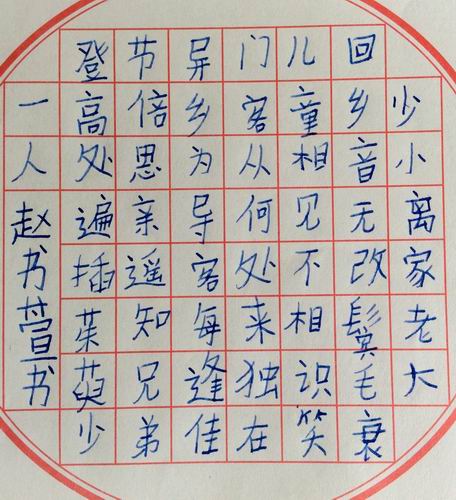 少小离家老大
回乡音无改鬓毛衰
儿童相见不相识笑
门客从何处来独在
异乡为异客每逢佳
节倍思亲遥知兄弟
登高处遍插茱萸少
一人赵书萱书